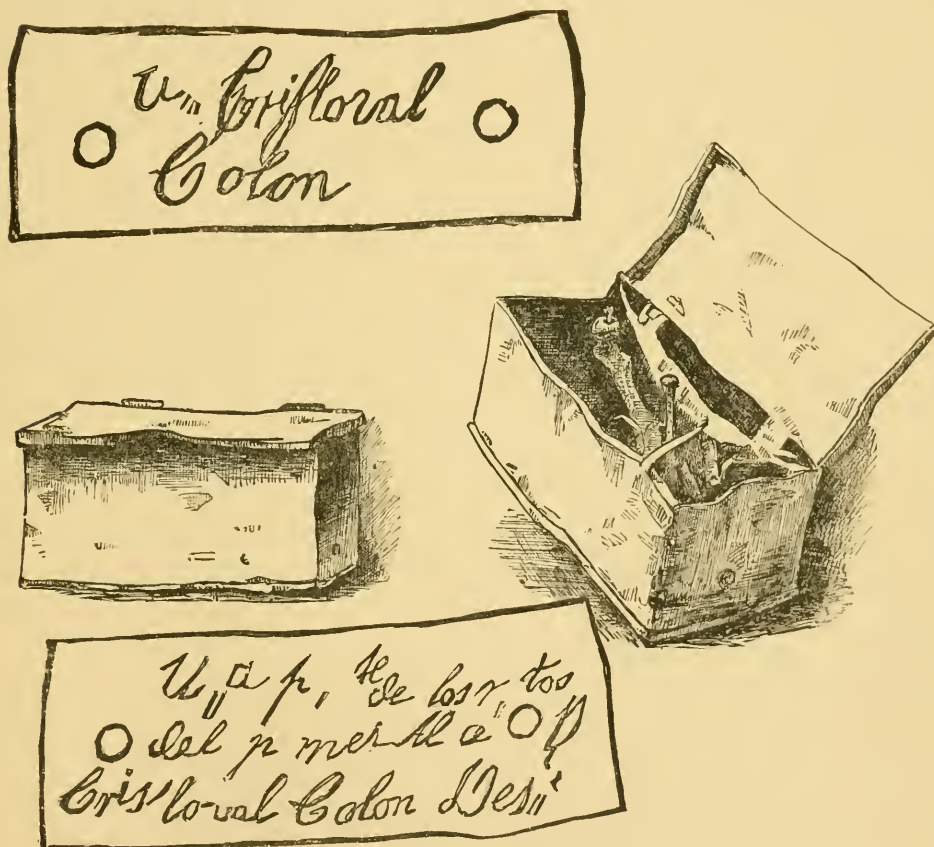 U,, Cristoval
Colon
U,, a p, te de los r tos
del p mer Al te D
Cris toval Colon Des,,